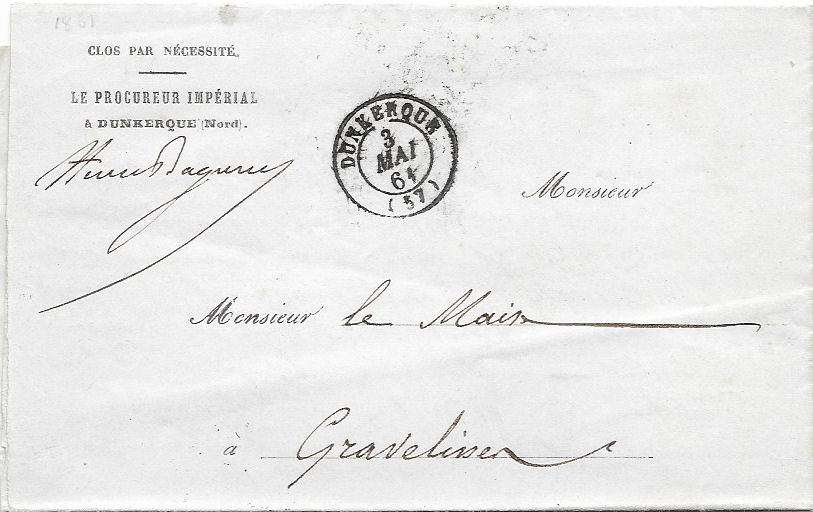 1861
CLOS PAR NÉCESSITÉ.
LE PROCUREUR IMPÉRIAL
à DUNKERQUE (Nord).
DUNKERQUE
3
MAI
61
(57)
Monsieur
Monsieur le Maire
à Gravelines